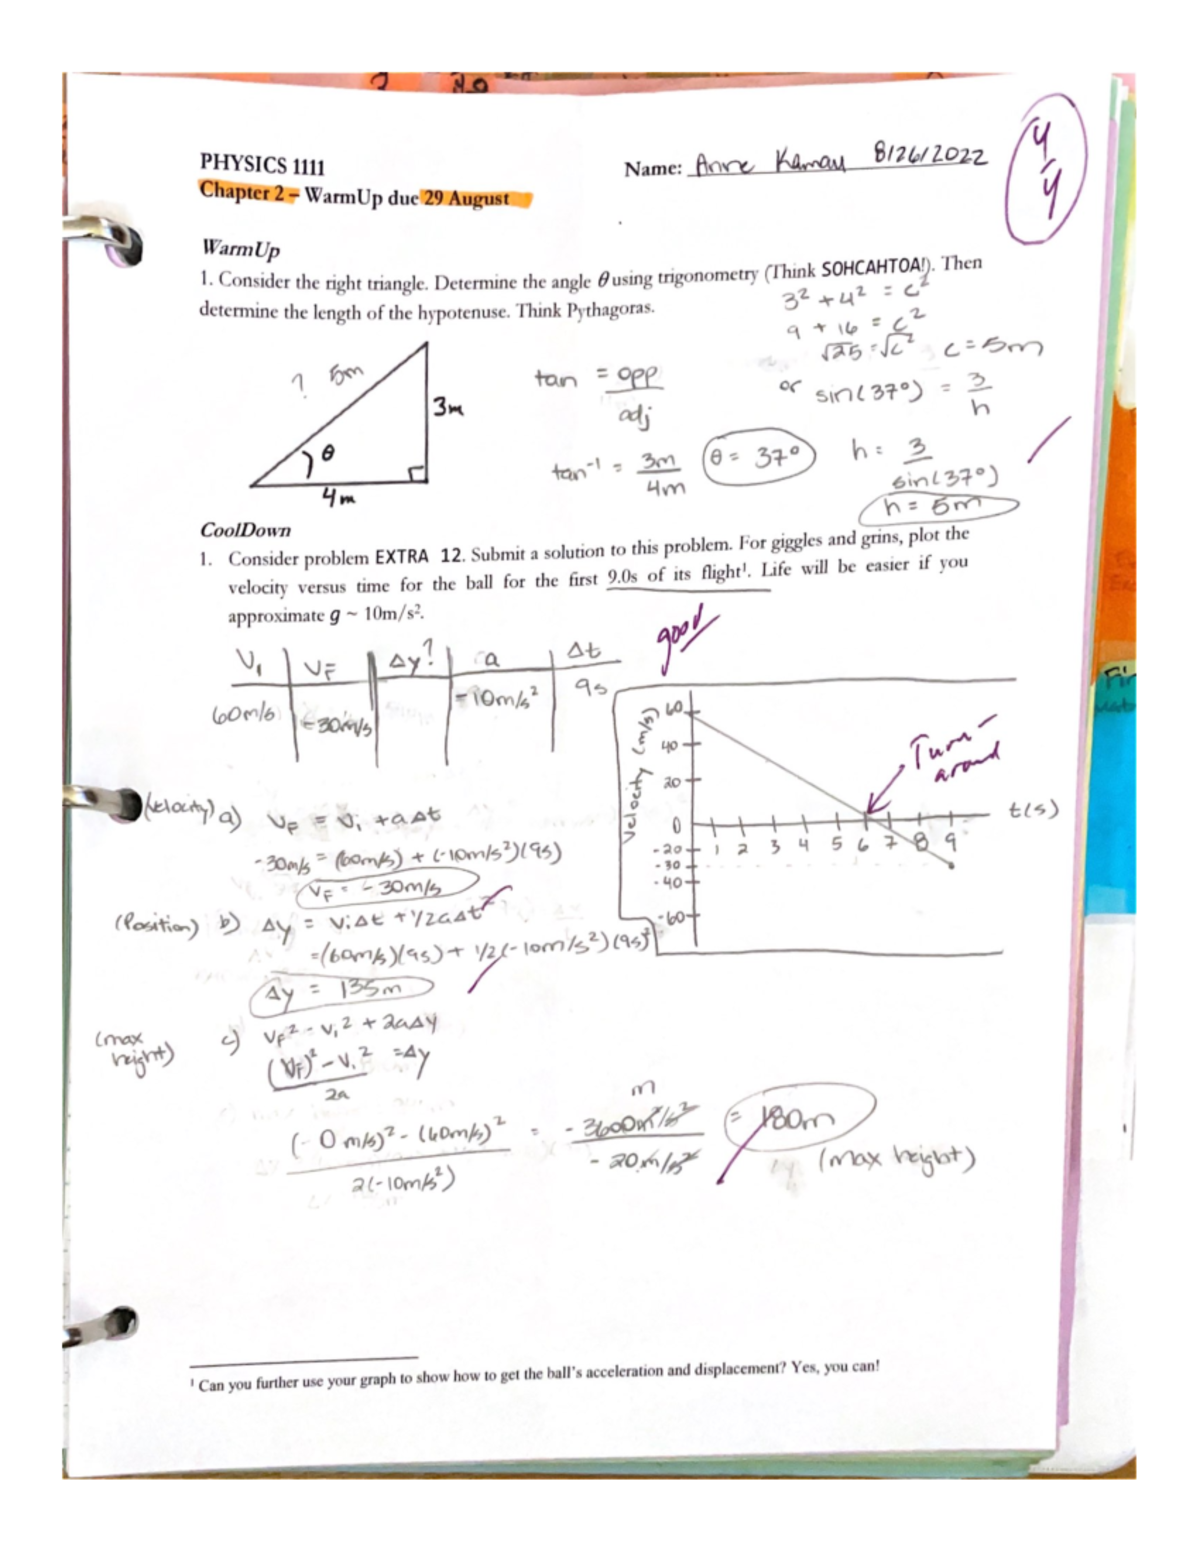 PHYSICS 1111
Name: Anne Kamau 8/26/2022
4/4
Chapter 2 – WarmUp due 29 August
WarmUp
1. Consider the right triangle. Determine the angle θ using trigonometry (Think SOHCAHTOA!). Then
determine the length of the hypotenuse. Think Pythagoras.
3² + 4² = c²
9 + 16 = c²
√25 = √c² c = 5m
? 5m
3m
θ
4m
tan = opp/adj
or sin(37°) = 3/h
tan⁻¹ = 3m/4m
θ = 37°
h = 3/sin(37°)
h = 5m
CoolDown
1. Consider problem EXTRA 12. Submit a solution to this problem. For giggles and grins, plot the
velocity versus time for the ball for the first 9.0s of its flight¹. Life will be easier if you
approximate g ~ 10m/s².
good
V₁ VF Δy? a Δt
60m/s -30m/s -10m/s² 9s
Velocity (m/s)
60
40
20
0
-20
-30
-40
-60
1 2 3 4 5 6 7 8 9
t(s)
Turn-
around
(velocity) a) VF = Vi + aΔt
-30m/s = (60m/s) + (-10m/s²)(9s)
VF = -30m/s
(Position) b) Δy = ViΔt + 1/2aΔt²
=(60m/s)(9s) + 1/2(-10m/s²)(9s)²
Δy = 135m
(max height) c) VF² - V₁² + 2aΔy
(VF)² - V₁²/2a = Δy
(- 0 m/s)² - (60m/s)²/2(-10m/s²) = - 3600m²/s²/- 20m/s² = 180m
m
(max height)
¹ Can you further use your graph to show how to get the ball's acceleration and displacement? Yes, you can!